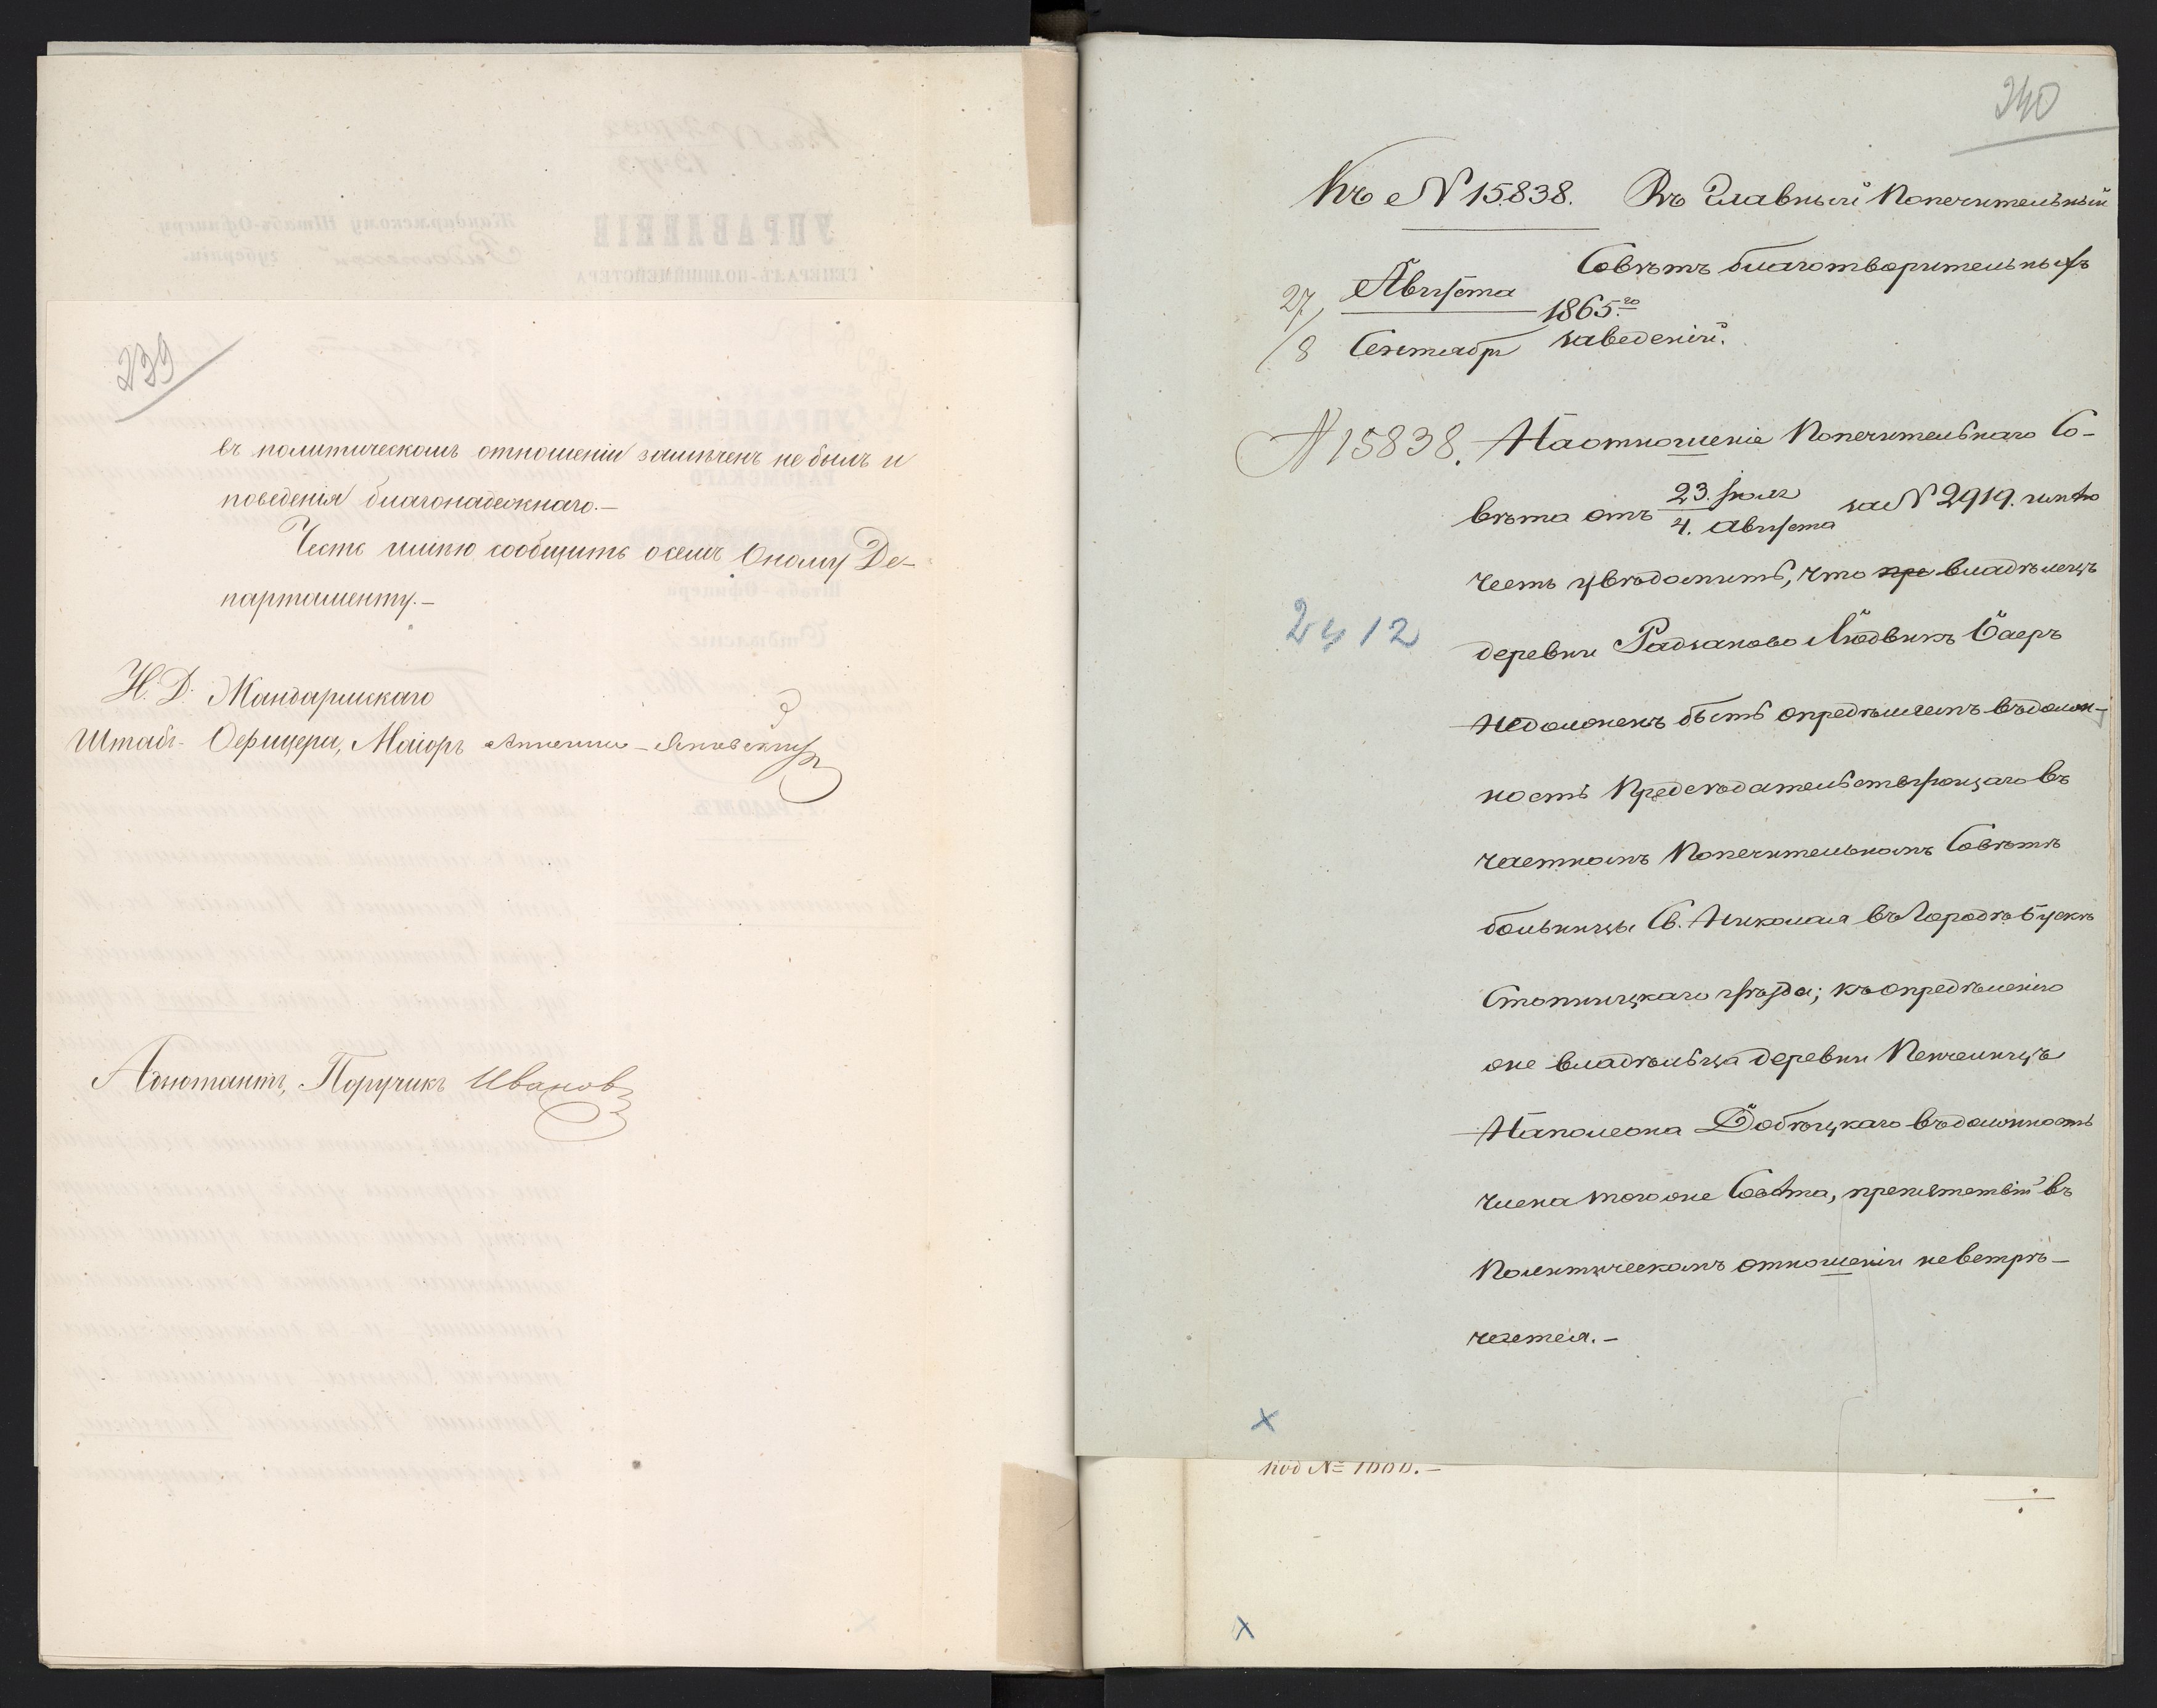 239
въ политическомъ отношеніи замѣченъ не былъ и
поведенія благонадежнаго.—
Честь имѣю сообщить о семъ Оному Де-
партаменту.—
И. Д. Жандармскаго
Штабъ-Офицера, Маіоръ
Адъютантъ, Поручикъ Иванов
240
Къ № 15838. Въ Главный Попечительный
Совѣтъ благотворительныхъ
27 Августа
8 Сентября 1865.го заведеній.
№ 15838. На отношеніе Попечительнаго Со-
вѣта отъ 23. Іюля / 4. Августа за № 2919. имѣю
честь увѣдомить, что пре владѣлецъ
2412
деревни Радзаново Людвикъ Баеръ
недолженъ быть опредѣляемъ въ долж-
ность Предсѣдательствующаго въ
частномъ Попечительномъ Совѣтѣ
больницы Св. Николая въ Городѣ Бускѣ
Стопницкаго уѣзда; къ опредѣленію
же владѣльца деревни
Наполеона Добѣцкаго въ должность
члена того же Совѣта, препятствій въ
Политическомъ отношеніи невстрѣ-
чается.—
под № 1000.—